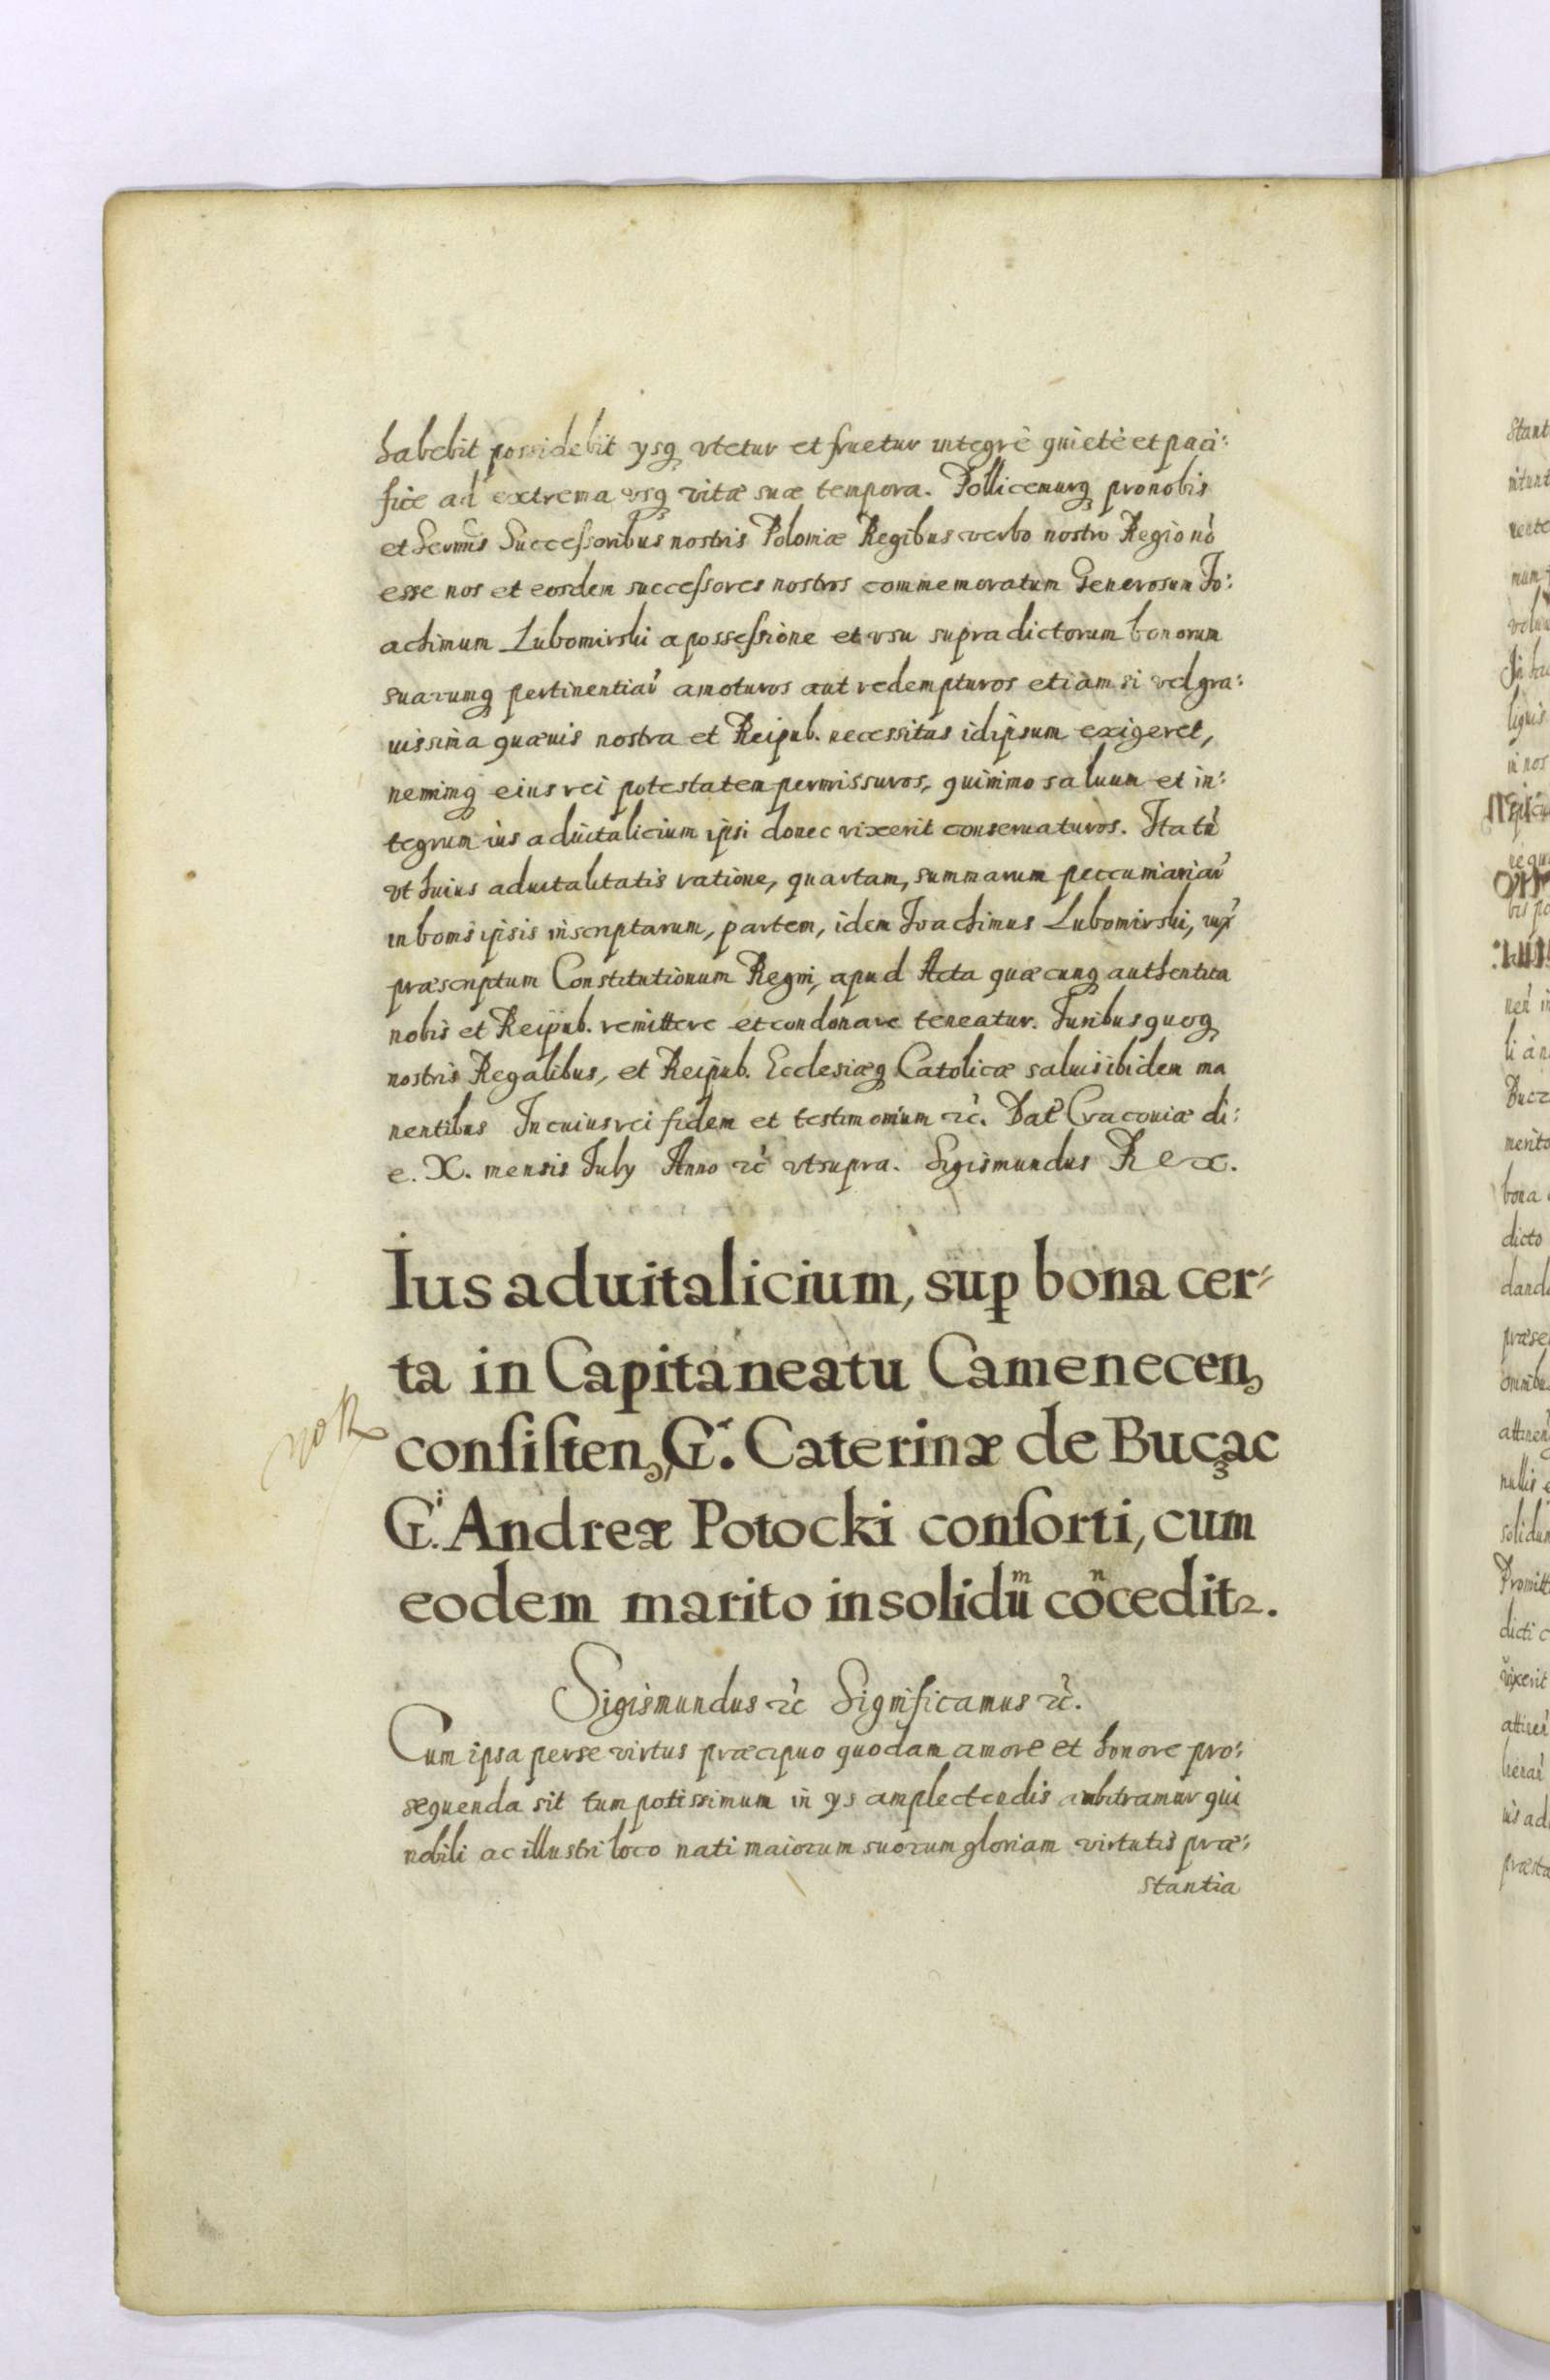 habebit possidebit ysq̨ vtetur et fruetur integrè quietè et paci:
fice ad extrema vsq̨ vitæ suæ tempora. Pollicemurq̨ pro nobis
et Sermis Succeſsoribus nostris Poloniæ Regibus verbo nostro Regio nò
esse nos et eosdem succeſsores nostros commemoratum Generosum Io:
achimum Lubomirski a posseſsione et vsu supradictorum bonorum
suarumq̨ pertinentiar̀ amoturos aut redempturos etiam si vel gra:
uissima quæuis nostra et Reipub. necessitas idipsum exigeret,
neminiq̨ eius rei potestatem permissuros, quinimo saluum et in:
tegrum ius aduitalicium ipsi donec vixerit conseruaturos. Ita tñ
vt huius aduitalitatis ratione, quartam, summarum peccuniariar̀
in bonis ipsis inscriptarum, partem, idem Ioachimus Lubomirski, iux̀
præscriptum Constitutionum Regni, apud Acta quæcunq̨ authentica
nobis et Reipub. remittere et condonare teneatur. Iuribus quoq̨
nostris Regalibus, et Reipub. Ecclesiæq̨ Catolicæ saluis ibidem ma
nentibus In cuius rei fidem et testimonium ⁊c̀. Dat̃ Cracouiæ di:
e. X. mensis July Anno ⁊c̀ vtsupra. Sigismundus Rex.
Ius aduitalicium, suꝑ bona cer⸗
ta in Capitaneatu Camenecen̨
conſiſten̨, G. Caterinæ de Buc̨ac
G.i Andreæ Potocki conſorti, cum
eodem marito in solidũm cõncedit⁊.
Sigismundus ⁊c̀ Significamus ⁊c̀.
Cum ipsa per se virtus præcipuo quodam amore et honore pro:
sequenda sit tum potissimum in ys amplectendis arbitramur qui
nobili ac illustri loco nati maiorum suorum gloriam virtutis præ:
stantia